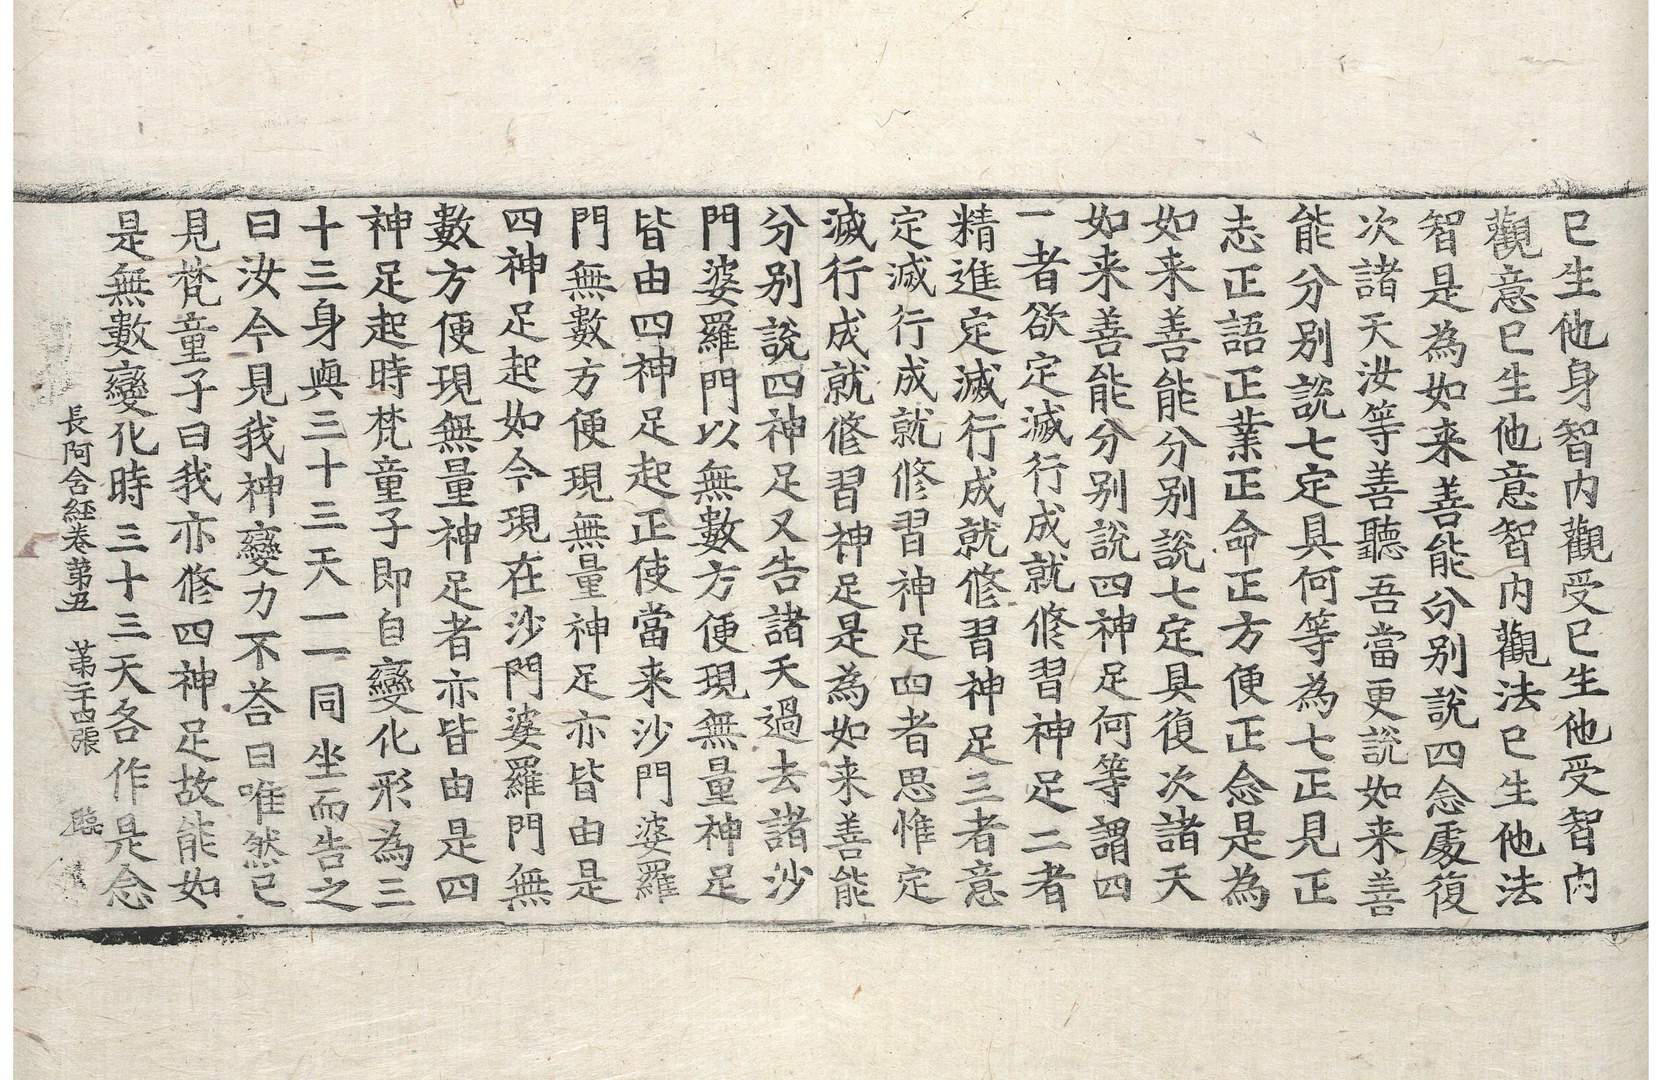 已生他身智內觀受已生他受智內
觀意已生他意智內觀法已生他法
智是為如来善能分别說四念䖏復
次諸天汝等善聽吾當更說如来善
能分别說七定具何等為七正見正
志正語正業正命正方便正念是為
如来善能分别說七定具復次諸天
如来善能分别說四神足何等謂四
一者欲定滅行成就修習神足二者
精進定滅行成就修習神足三者意
定滅行成就修習神足四者思惟定
滅行成就修習神足是為如来善能
分别說四神足又告諸天過去諸沙
門婆羅門以無數方便現無量神足
皆由四神足起正使當来沙門婆羅
門無數方便現無量神足亦皆由是
四神足起如今現在沙門婆羅門無
數方便現無量神足者亦皆由是四
神足起時梵童子即自變化形為三
十三身與三十三天一一同坐而告之
曰汝今見我神變力不荅曰唯然已
見梵童子曰我亦修四神足故能如
是無數變化時三十三天各作是念
長阿含經卷苐五 苐二十四張